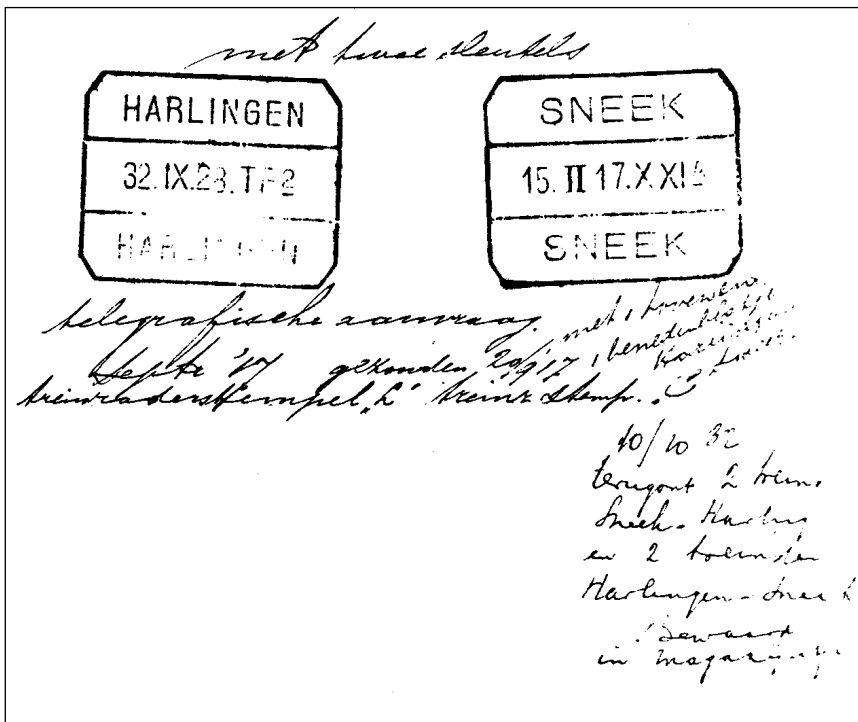 met twee sleutels
HARLINGEN
32.IX.28.T
HARLINGEN
SNEEK
15.II 17.X XI
SNEEK
telegrafische aanvraag
Septr '17 gezonden 20/9 '17
met 1 bovenen
1 benedenblokje
treinraderstempel "L" treinr stemp.
10/10 32
terugont 2 trein.
Sneek - Harling
en 2 treinden
Harlingen - Sneek
Bewaard
in magazijn